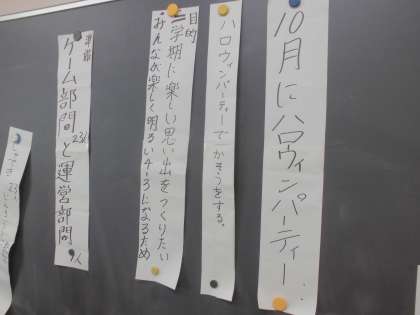 10月にハロウィンパーティー
ハロウィンパーティーでかそうをする。
目的
二学期に楽しい思い出をつくりたい
・みんなが楽しく明るい4-3になるため
準備
ゲーム部門23人と運営部門9人